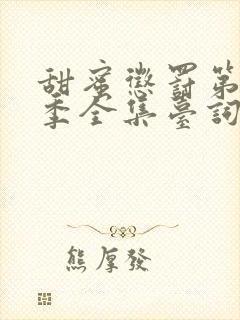 甜蜜懲罰第
季全集臺詞
熊厚發